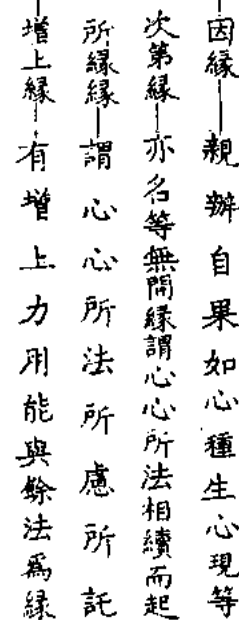 因緣——親辦自果如心種生心現等
次第緣——亦名等無間緣謂心心所法相續而起
所緣緣——謂心心所法所慮所託
增上緣——有增上力用能與餘法為緣